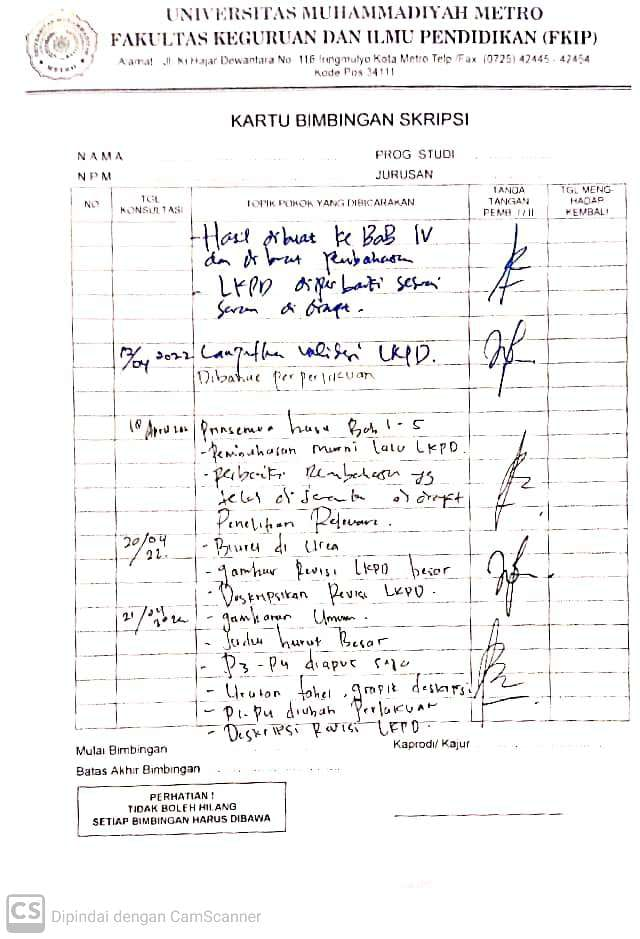 UNIVERSITAS MUHAMMADIYAH METRO
FAKULTAS KEGURUAN DAN ILMU PENDIDIKAN (FKIP)
Alamat Jl. Ki Hajar Dewantara No 116 Iringmulyo Kota Metro Telp /Fax (0725) 42445 - 42454
Kode Pos 34111
KARTU BIMBINGAN SKRIPSI
NAMA PROG STUDI
NPM JURUSAN
NO TGL KONSULTASI TOPIK POKOK YANG DIBICARAKAN TANDA TANGAN PEMB. I / II TGL MENG- HADAP KEMBALI
- Hasil dibuat ke BaB IV
dan dibuat pembahasan
- LKPD diperbaiki sesuai
saran di draft.
13/04 2022 Lanjutkan validasi LKPD.
Dibahas per perlakuan
18 April 202 Bab 1-5
- Pembahasan murni lalu LKPD.
- perbaiki Pembahasan yg
telah di di draft
Penelitian Relevan.
20/04 22. - Biuret di Urea
- gambar Revisi LKPD besar
- Deskripsikan Revisi LKPD.
21/04 2022 - gambaran Umum.
- Judul huruf Besar
- P3 - P4 diapus saja
- Urutan tabel, grapik deskripsi
- P1-P4 diubah Perlakuan
- Deskripsi Revisi LKPD.
Mulai Bimbingan Kaprodi/ Kajur
Batas Akhir Bimbingan
PERHATIAN !
TIDAK BOLEH HILANG
SETIAP BIMBINGAN HARUS DIBAWA
CS Dipindai dengan CamScanner